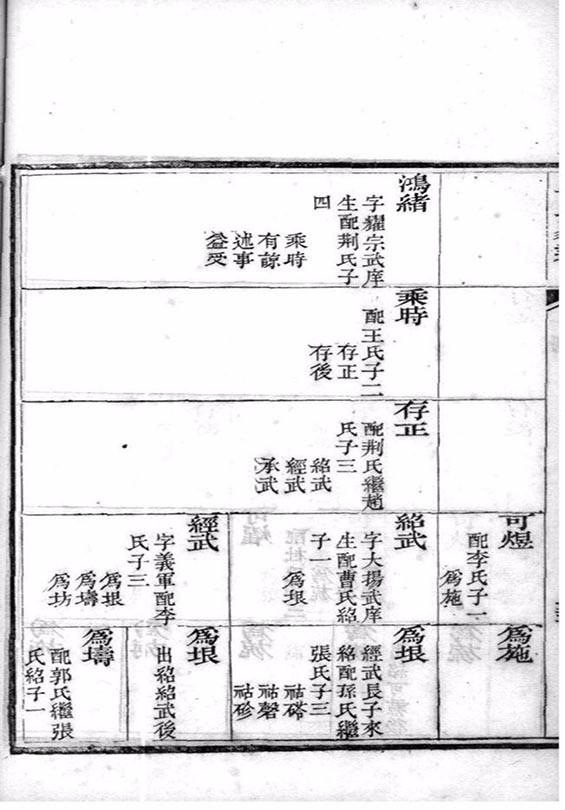 鴻緒
字耀宗武庠
生配荆氏子
四
乘時
有諒
述事
益受
乘時
配王氏子二
存正
存後
存正
配荆氏繼趙
氏子三
紹武
經武
承武
可煜
配李氏子一
爲施
紹武
字大揚武庠
生配曹氏紹
子一
爲垠
經武
字義軍配李
氏子三
爲垠
爲壔
爲坊
爲施
爲垠
經武長子來
紹配孫氏繼
張氏子三
祜
祜磬
祜
爲垠
出紹紹武後
爲壔
配郭氏繼張
氏紹子一